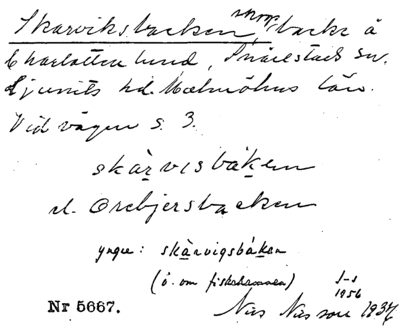 Skarviksbacken, backe å
Charlottenlund, Snårestads sn.
Ljunits hd. Malmöhus län.
Vid vägen s. 3.
skàrvisbákem
el. Orebjersbacken
yngre: skàrvigsbákan
(ö. om fiskehamnen)
1956
Nr 5667.
Nils Nilsson 1934